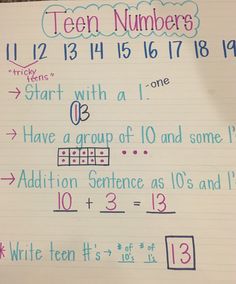 Teen Numbers
11 12 13 14 15 16 17 18 19
"tricky teens"
→ Start with a 1. -one
13
→ Have a group of 10 and some 1'
→ Addition Sentence as 10's and 1'
10 + 3 = 13
* Write teen #'s → # of 10's # of 1's 13